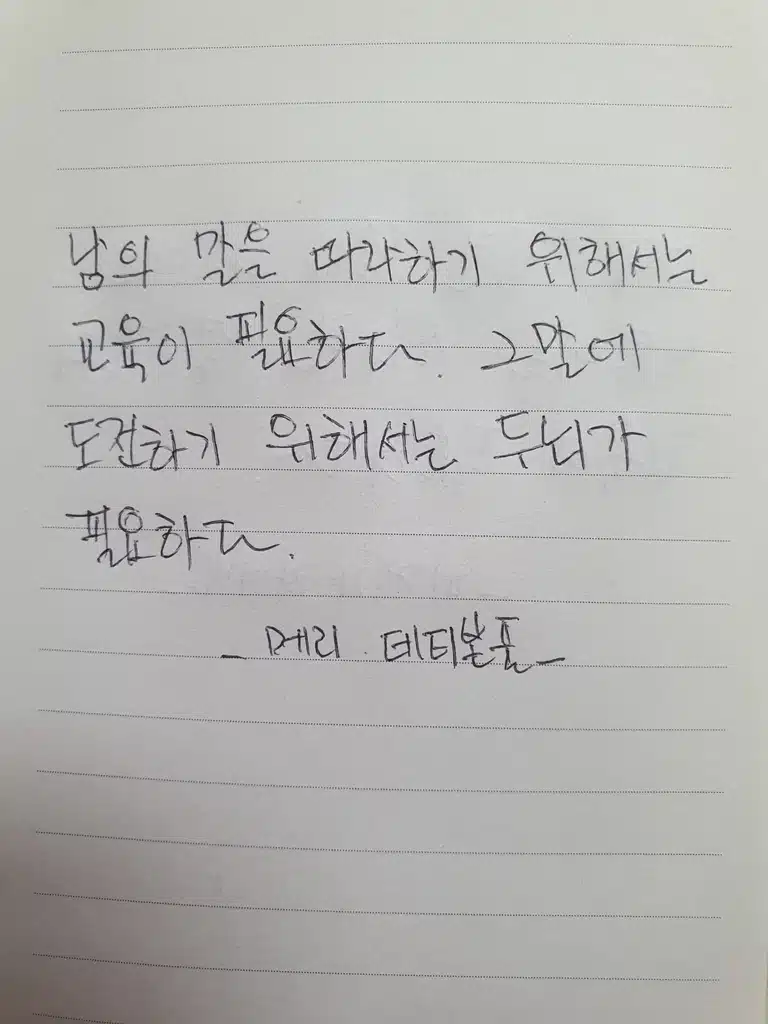 남의 말을 따라하기 위해서는
교육이 필요하다. 그말에
도전하기 위해서는 두뇌가
필요하다.
_ 메리 . 테티본폴 _